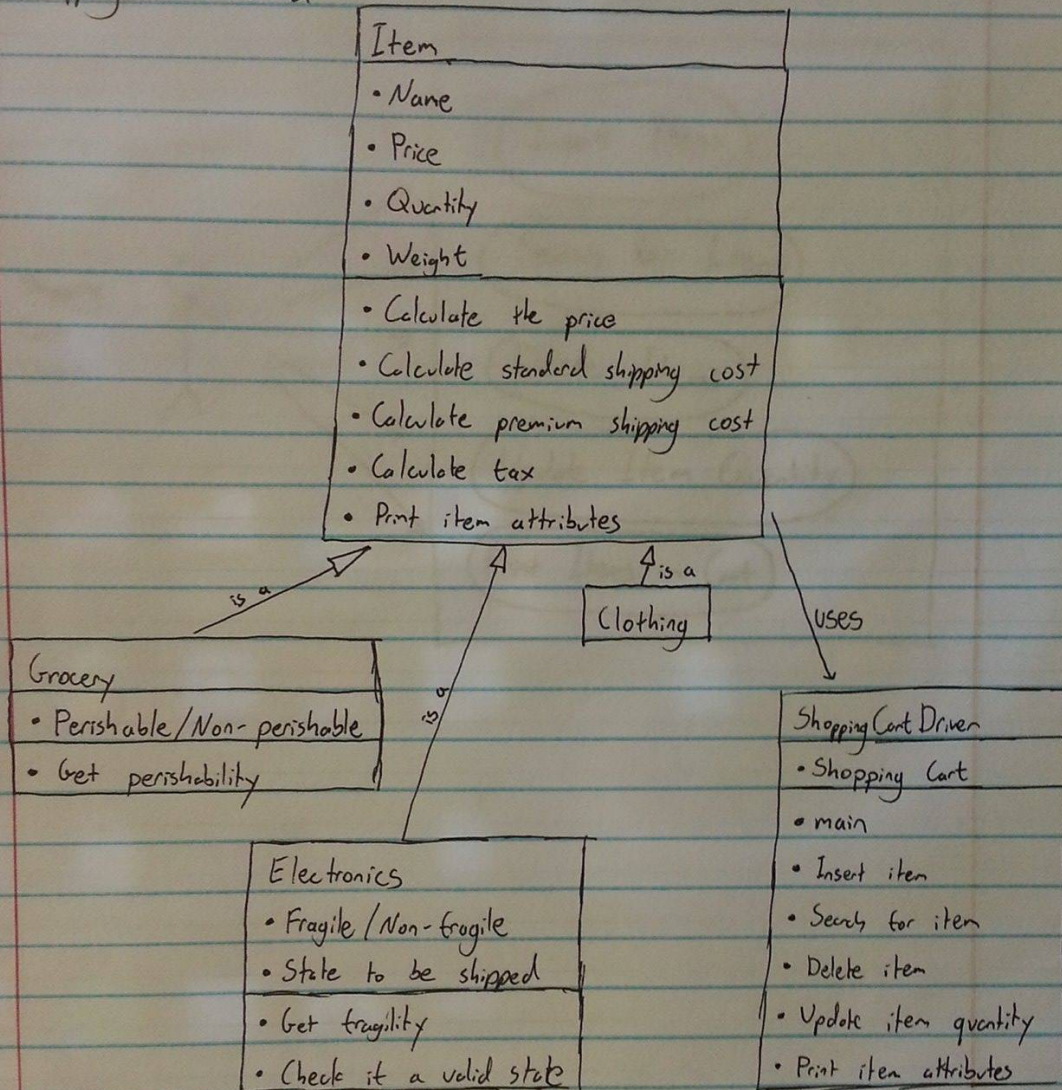 Item
• Name
• Price
• Quantity
• Weight
• Calculate the price
• Calculate standard shipping cost
• Calculate premium shipping cost
• Calculate tax
• Print item attributes
is a
is a
is a
uses
Clothing
Grocery
• Perishable/Non-perishable
• Get perishability
Electronics
• Fragile/Non-fragile
• State to be shipped
• Get fragility
• Check if a valid state
Shopping Cart Driver
• Shopping Cart
• main
• Insert item
• Search for item
• Delete item
• Update item quantity
• Print item attributes